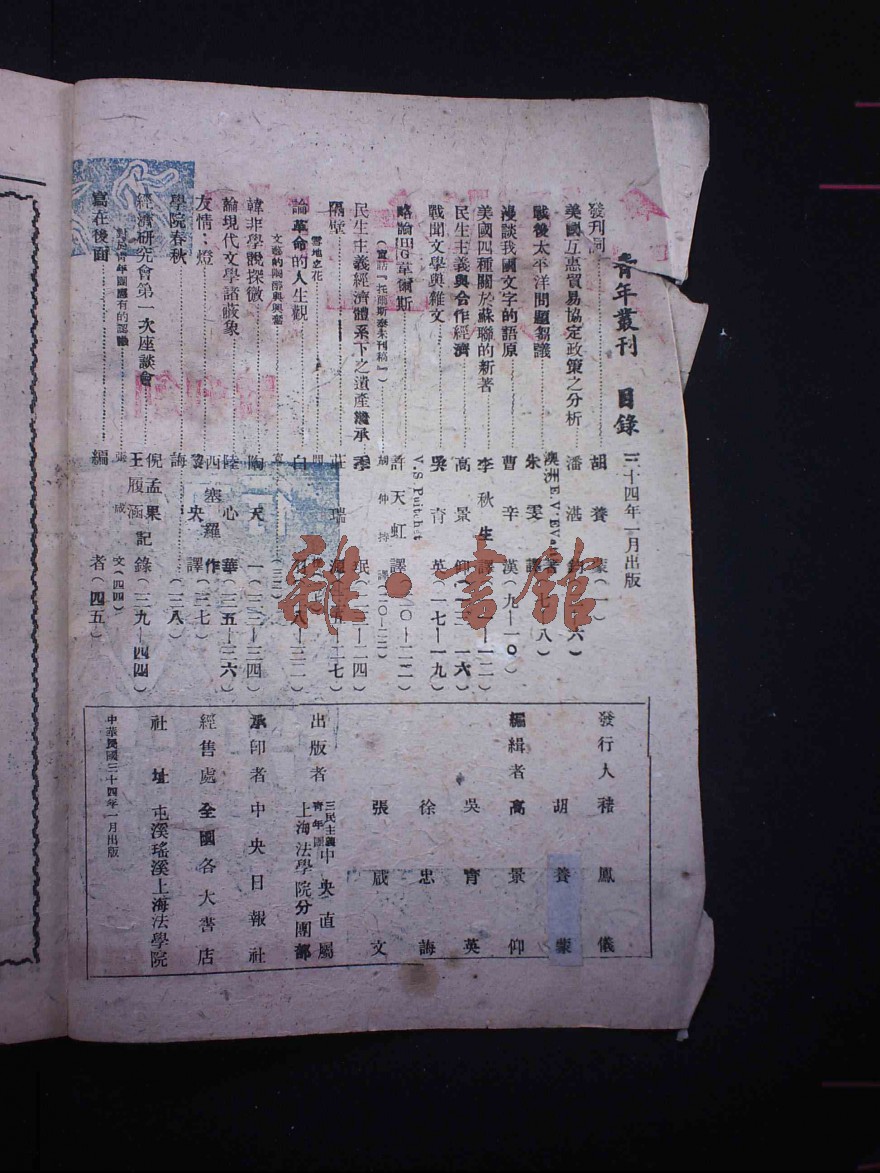 青年叢刊 目錄 三十四年一月出版
發刊詞 胡養蒙(一)
美國互惠貿易協定政策之分析 潘湛 六)
戰後太平洋問題芻議 澳洲E.V.EVatt著 朱雯譯 八)
漫談我國文字的語原 曹辛漢(九—一〇)
美國四種關於蘇聯的新著 李秋生譯 一—一二)
民生主義與合作經濟 高景仰(一三—一六)
戰聞文學與雜文 吳育英(一七—一九)
略論田G韋爾斯 V.S.Puitchet 許天虹譯 二〇—二二)
(書話『托爾斯泰未刊稿』) 胡仲持譯(二〇—二二)
民生主義經濟體系下之遺產繼承 季 珉(二三—二四)
隔壁 莊瑞源 五—二七)
雪地之花
論革命的人生觀 白 八—三一)
文藝的陶醉與興奮
韓非學說探微 陶天一(三三—三四)
論現代文學諸敝象 陸心華(三五—三六)
友情:燈 西塞羅作 央譯(三七)
學院春秋 誨(三八)
經濟研究會第一次座談會 倪孟果 王履涵記錄(三九—四四)
對於青年團應有的認識 張晠文(四四)
寫在後面 編者(四五)
發行人 褚鳳儀
胡養蒙
編緝者 高景仰
吳育英
徐忠誨
張晠文
出版者 三民主義青年團中央直屬上海法學院分團部
承印者 中央日報社
經售處 全國各大書店
社址 屯溪瑤溪上海法學院
中華民國三十四年一月出版
雜·書館